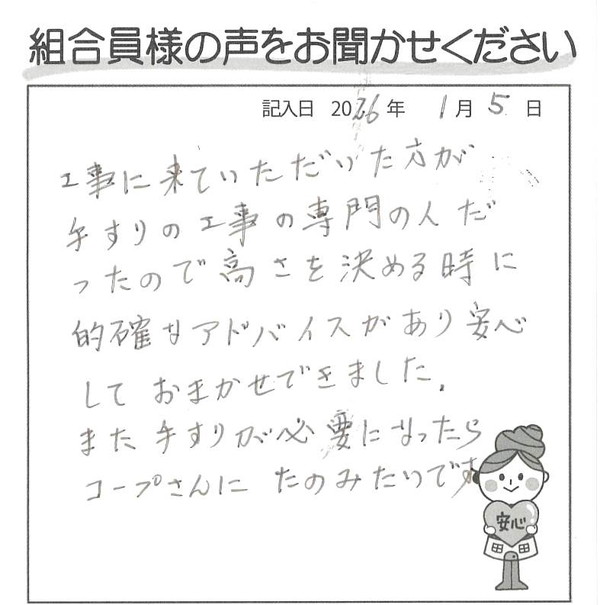 組合員様の声をお聞かせください
記入日 2026年 1月 5日
工事に来ていただいた方が
手すりの工事の専門の人だ
ったので高さを決める時に
的確なアドバイスがあり安心
しておまかせできました。
また手すりが必要になったら
コープさんにたのみたいです
安心